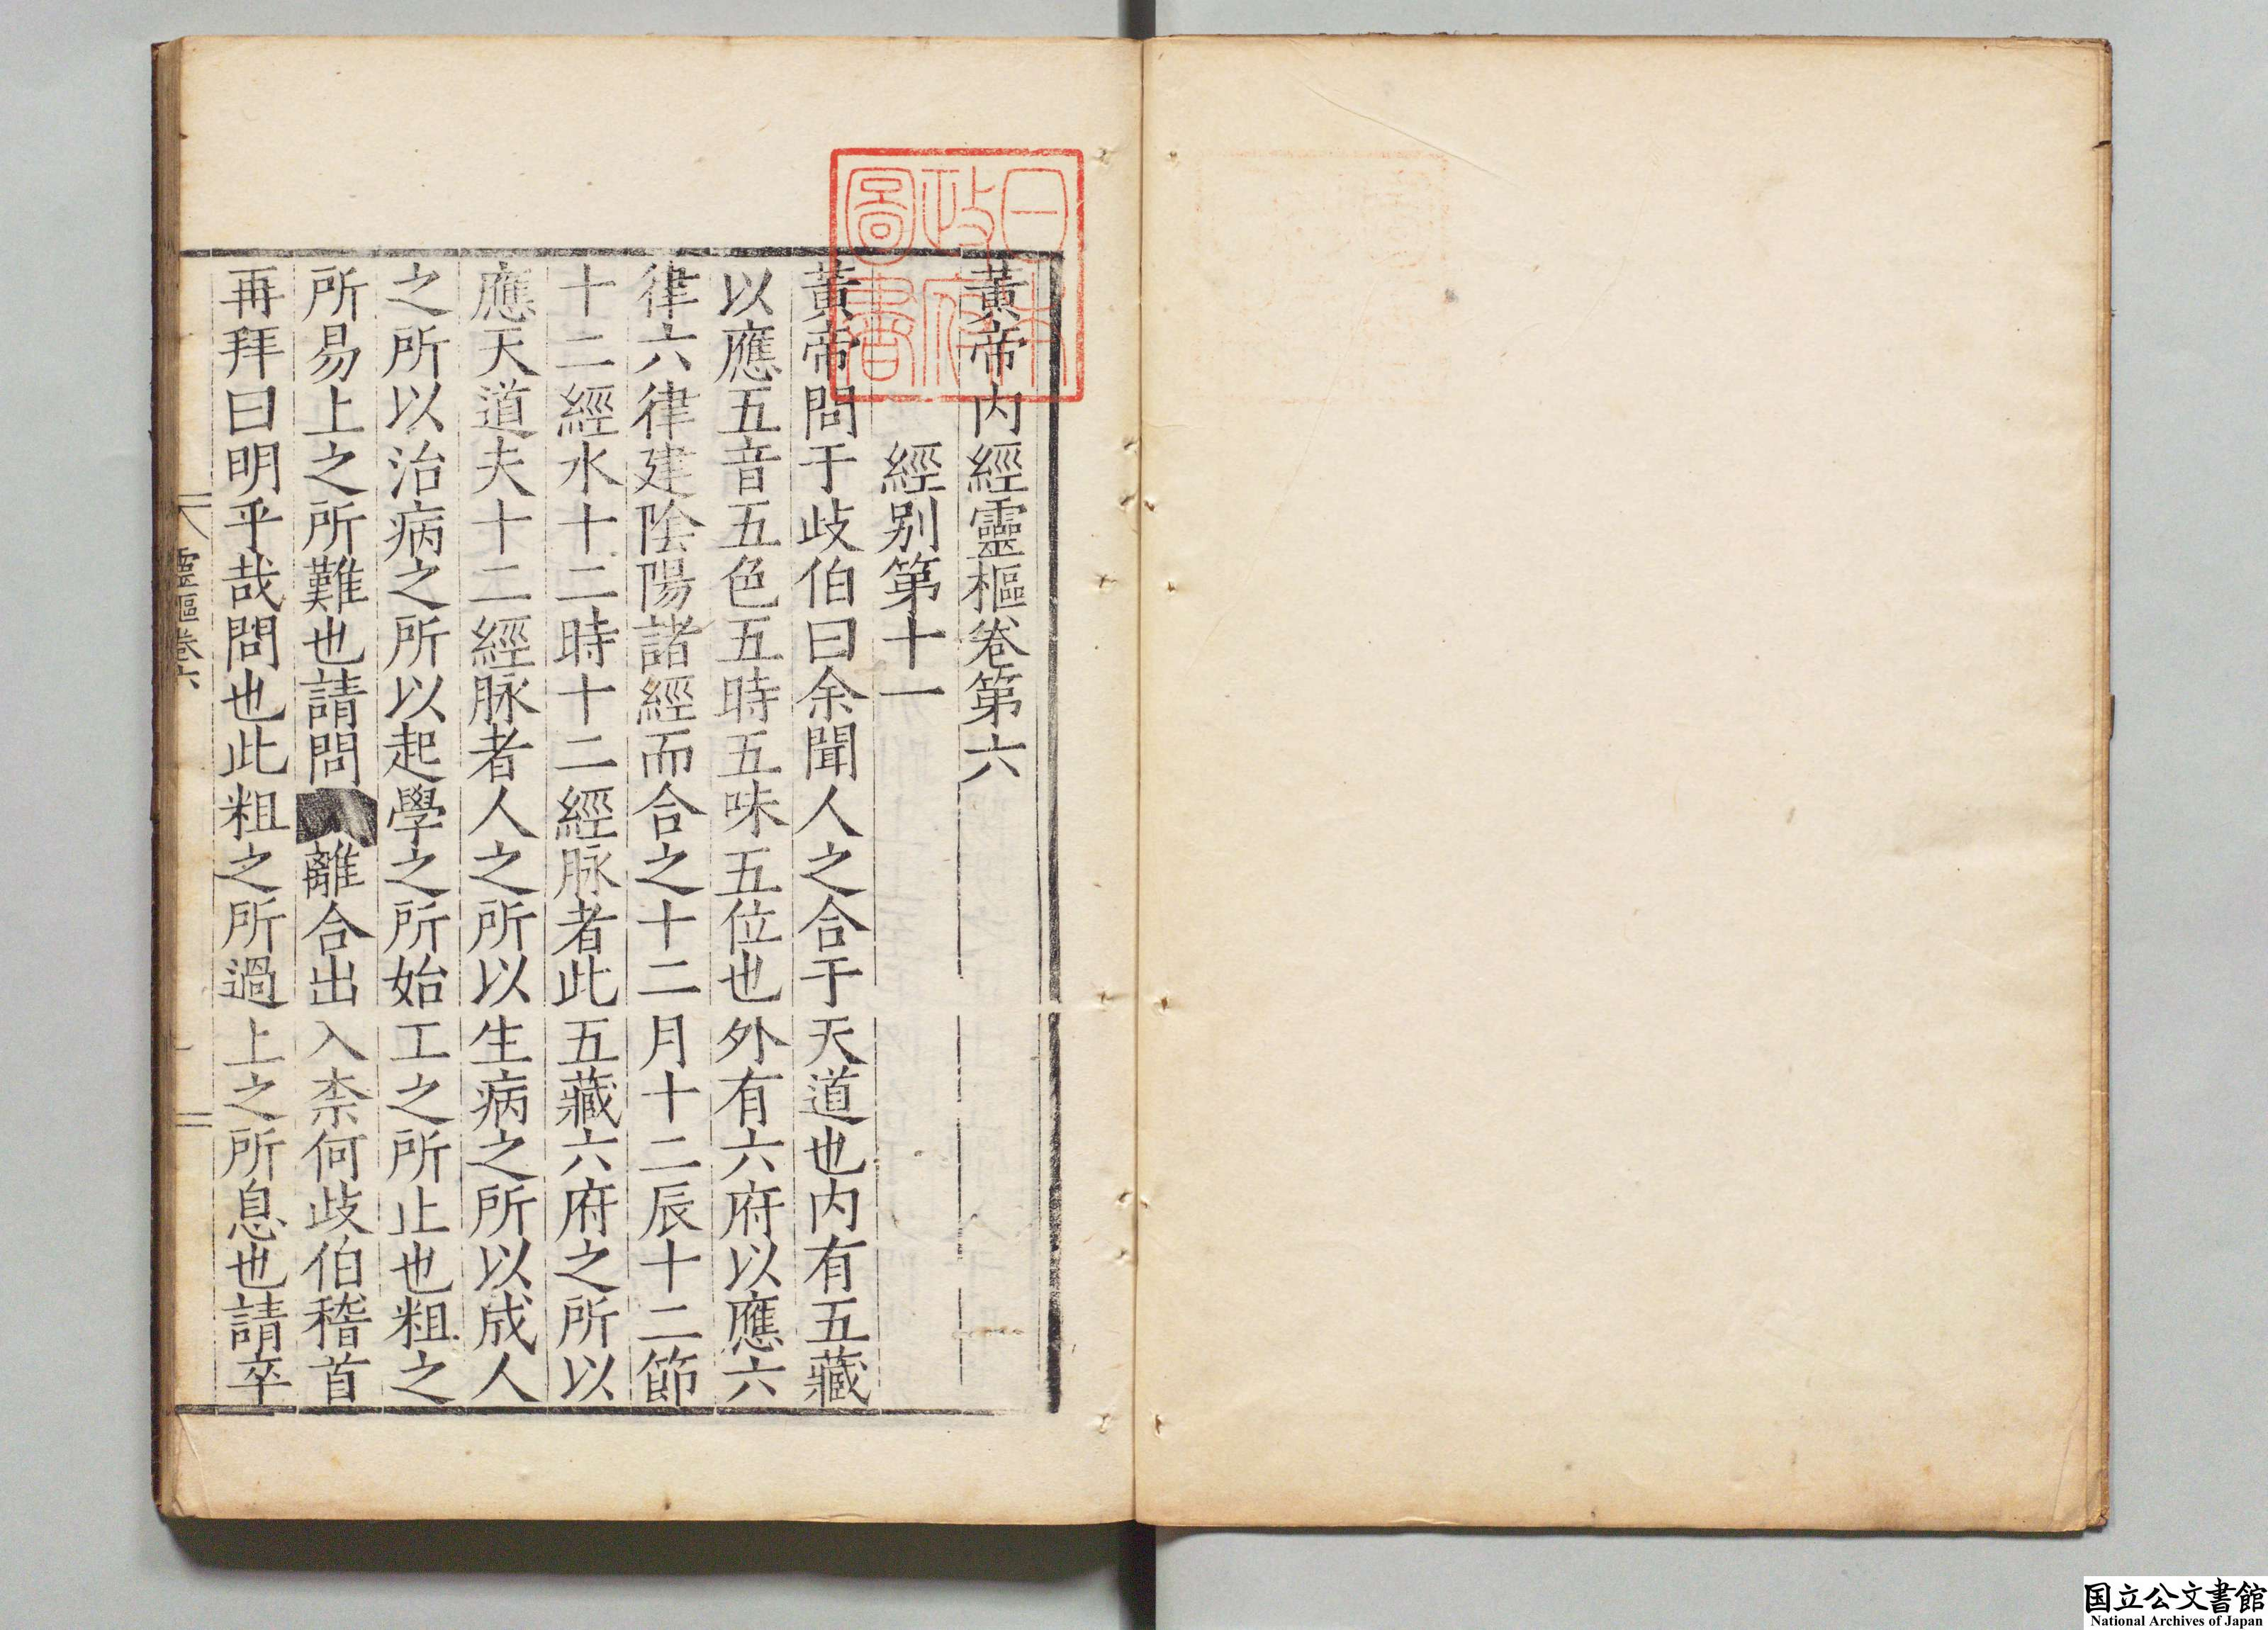 黃帝内經靈樞卷第六
經別第十一
黃帝問于歧伯曰余聞人之合于天道也内有五藏
以應五音五色五時五味五位也外有六府以應六
律六律建陰陽諸經而合之十二月十二辰十二節
十二經水十二時十二經脉者此五藏六府之所以
應天道夫十二經脉者人之所以生病之所以成人
之所以治病之所以起學之所始工之所止也粗之
所易上之所難也請問離合出入柰何歧伯稽首
再拜曰明乎哉問也此粗之所過上之所息也請卒
靈樞卷六
日本
政府
圖書
国立公文書館
National Archives of Japan